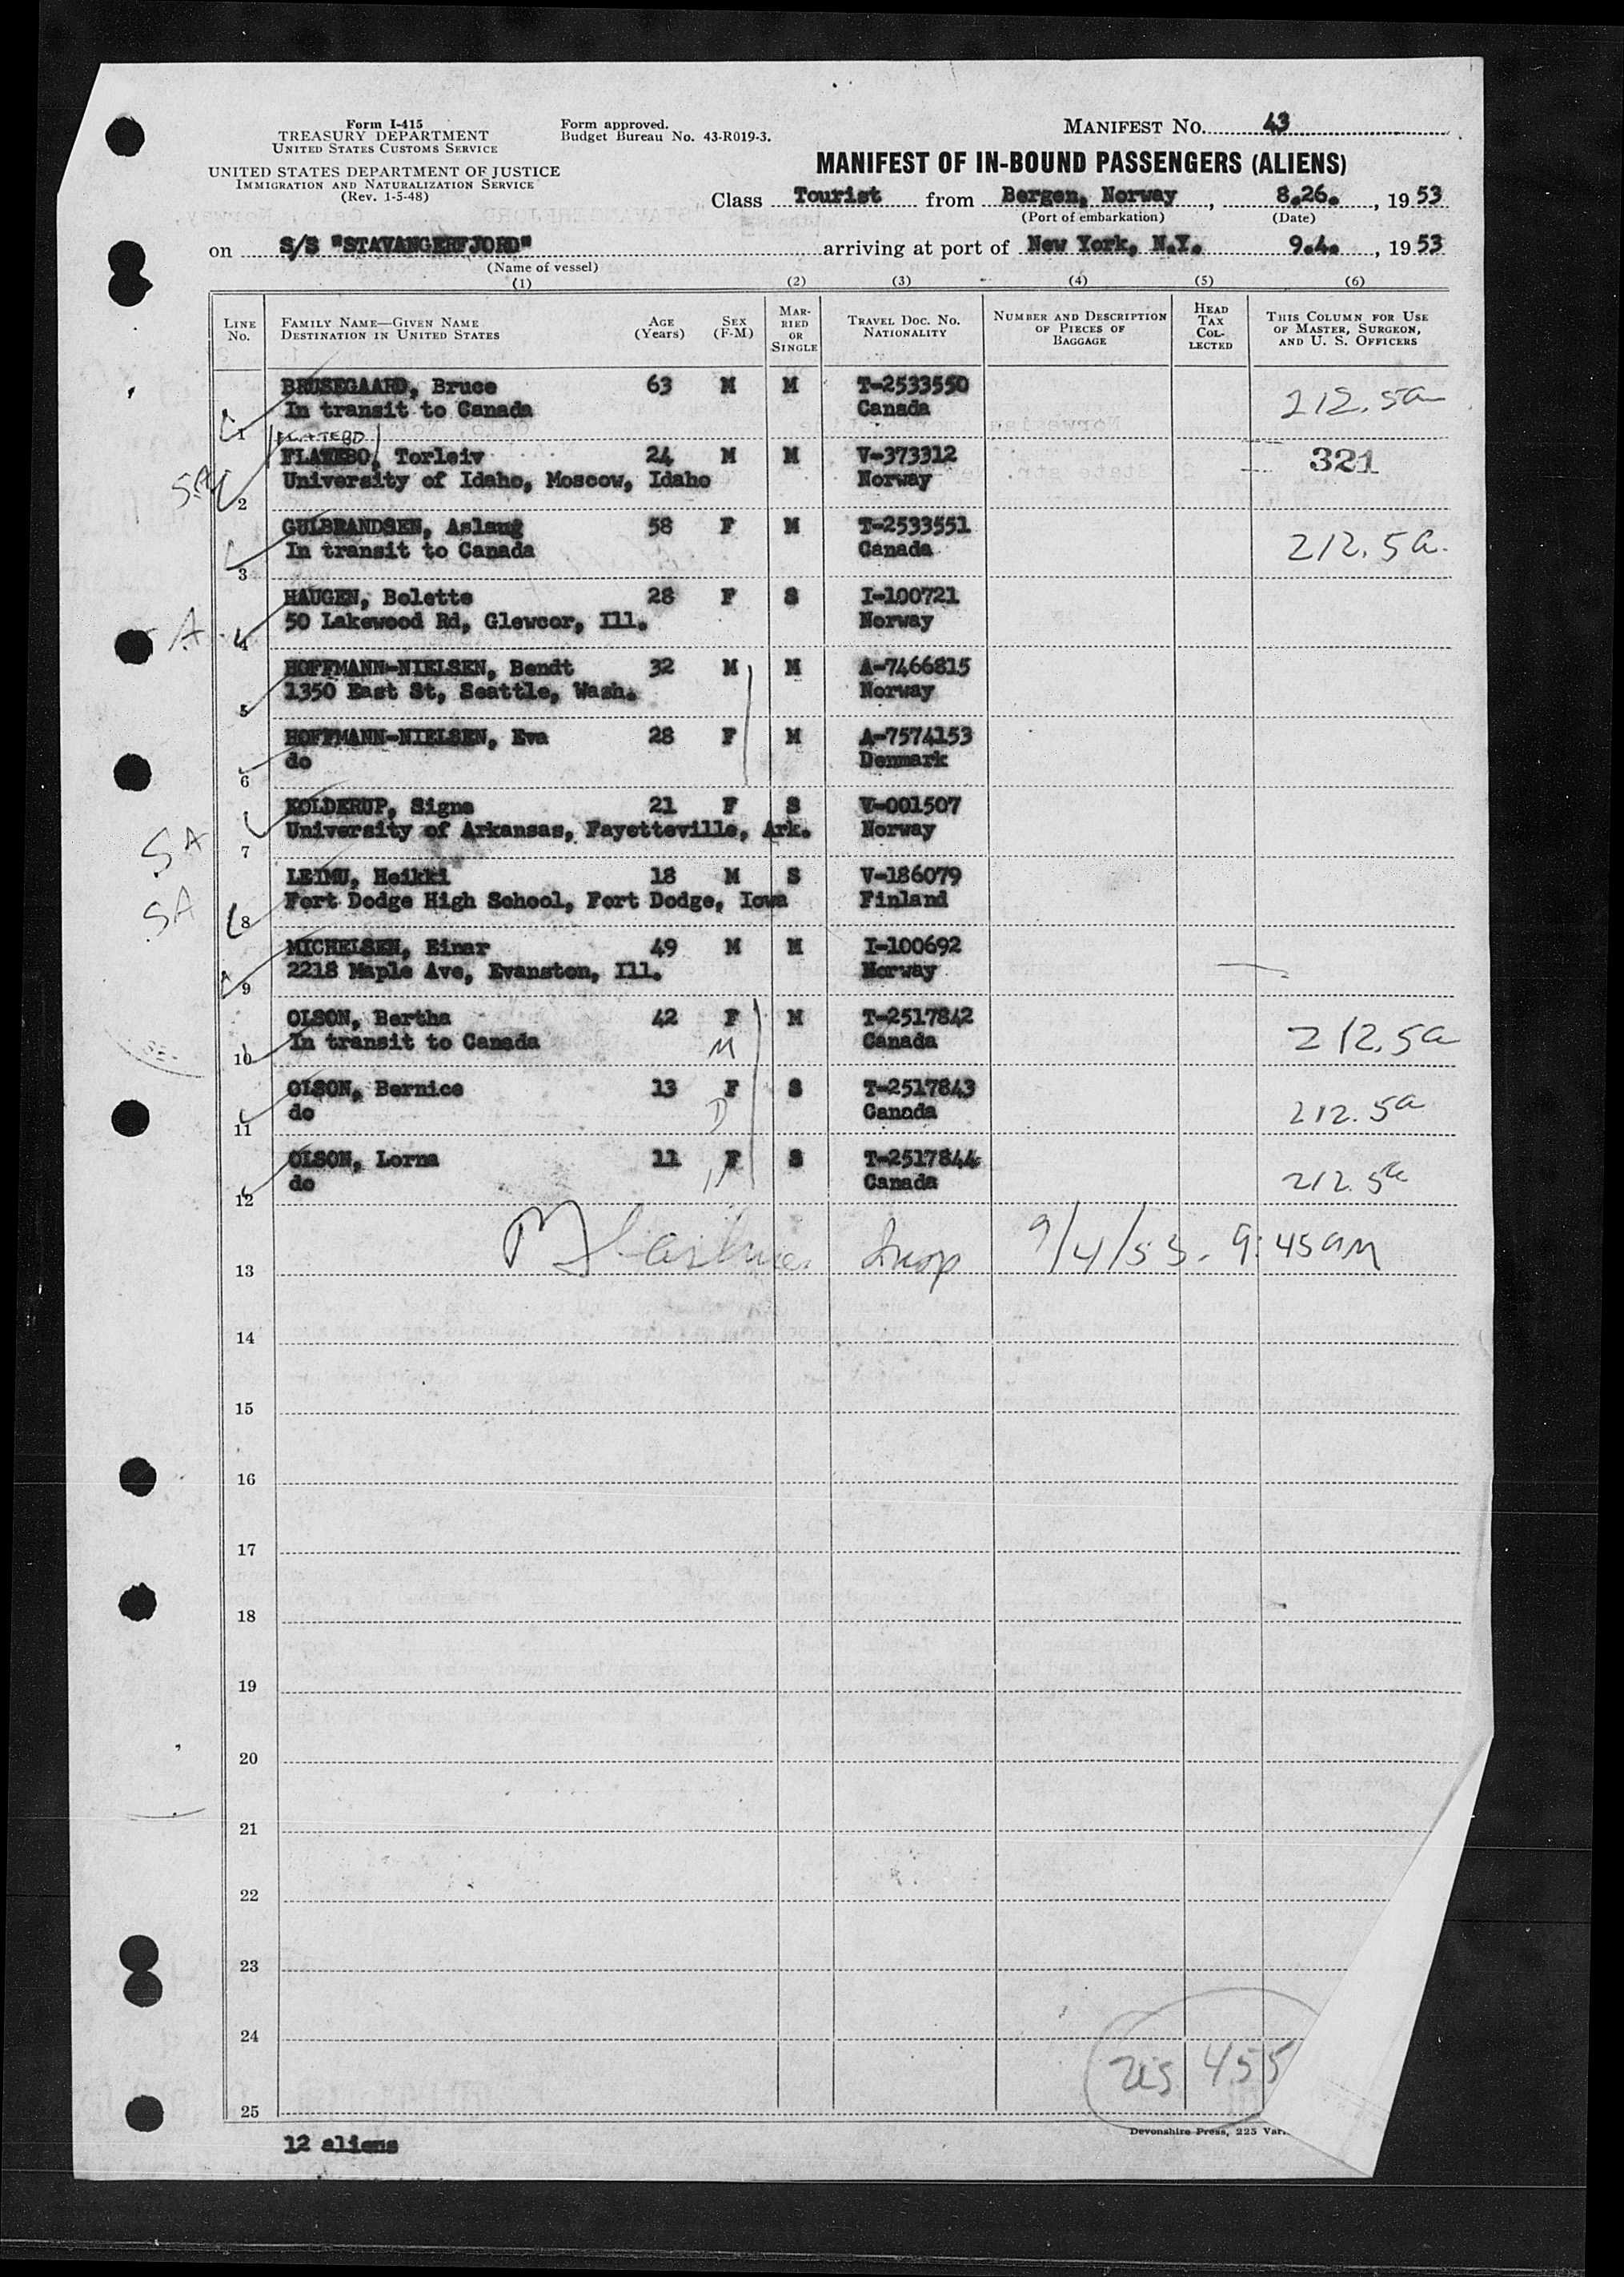 Form I-415
TREASURY DEPARTMENT
UNITED STATES CUSTOMS SERVICE
UNITED STATES DEPARTMENT OF JUSTICE
IMMIGRATION AND NATURALIZATION SERVICE
(Rev. 1-5-48)
Form approved.
Budget Bureau No. 43-R019-3.
MANIFEST NO. 43
MANIFEST OF IN-BOUND PASSENGERS (ALIENS)
Class Tourist from Bergen, Norway, 8.26., 1953
(Port of embarkation) (Date)
on S/S "STAVANGERFJORD" arriving at port of New York, N.Y. 9.4., 1953
(Name of vessel)
(1) (2) (3) (4) (5) (6)
LINE NO. FAMILY NAME—GIVEN NAME DESTINATION IN UNITED STATES AGE (Years) SEX (F-M) MARRIED OR SINGLE TRAVEL DOC. NO. NATIONALITY NUMBER AND DESCRIPTION OF PIECES OF BAGGAGE HEAD TAX COLLECTED THIS COLUMN FOR USE OF MASTER, SURGEON, AND U. S. OFFICERS
BRUSEGAARD, Bruce 63 M M T-2533550 212.5a
1 In transit to Canada Canada
FLATEBO
FLATEBO, Torleiv 24 M M V-373312 321
SA 2 University of Idaho, Moscow, Idaho Norway
GULBRANDSEN, Aslaug 58 F M T-2533551 212.5a.
3 In transit to Canada Canada
HAUGEN, Bolette 28 F S I-100721
A 4 50 Lakewood Rd, Glewcor, Ill. Norway
HOFFMANN-NIELSEN, Bendt 32 M M A-7466815
5 1350 East St, Seattle, Wash. Norway
HOFFMANN-NIELSEN, Eva 28 F M A-7574153
6 do Denmark
KOLDERUP, Signe 21 F S V-001507
SA 7 University of Arkansas, Fayetteville, Ark. Norway
LEIMU, Heikki 18 M S V-186079
SA 8 Fort Dodge High School, Fort Dodge, Iowa Finland
MICHELSEN, Einar 49 M M I-100692
9 2218 Maple Ave, Evanston, Ill. Norway
OLSON, Bertha 42 F M T-2517842 212.5a
10 In transit to Canada M Canada
OLSON, Bernice 13 F S T-2517843 212.5a
11 do D Canada
OLSON, Lorna 11 F S T-2517844 212.5a
12 do D Canada
13 Insp 9/4/53. 9:45am
14
15
16
17
18
19
20
21
22
23
24
455
25
12 aliens
Devonshire Press, 225